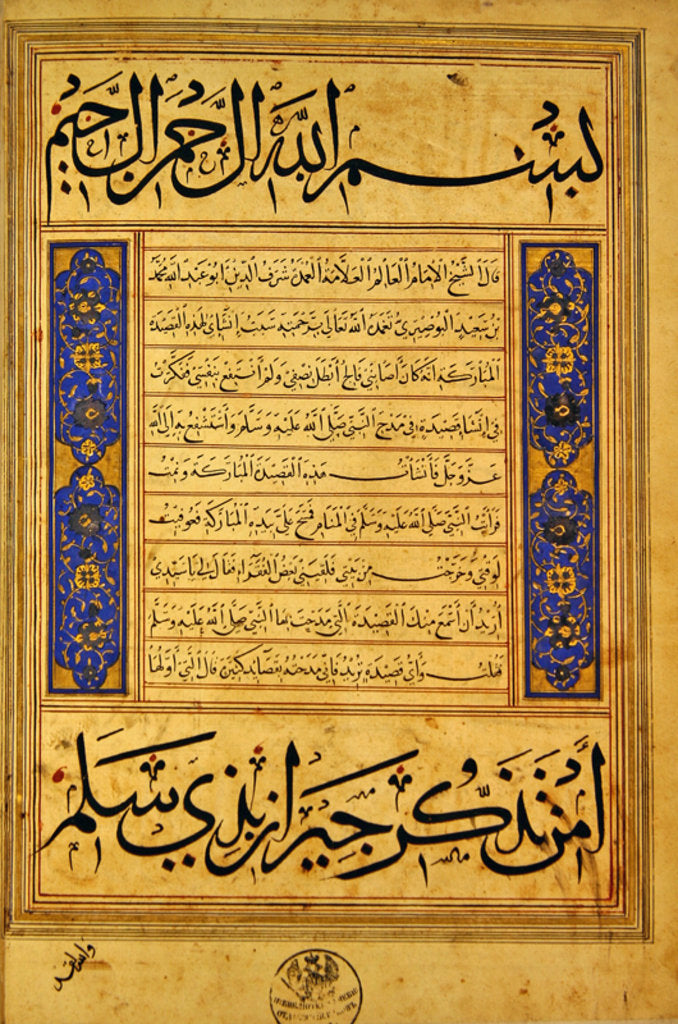 بسم الله الرحمن الرحيم
قال الشيخ الامام العالم العلامة العمدة شرف الدين ابو عبد الله محمد
بن سعيد البوصيري تغمده الله تعالى برحمته سبب إنشاي لهذه القصيدة
المباركة انه كان أصابني فالج أبطل نصفي ولم أنتفع بنفسي ففكرت
في إنشا قصيدة في مدح النبي صلى الله عليه وسلم وأستشفع به إلى الله
عز وجل فأنشأت هذه القصيدة المباركة ونمت
فرأيت النبي صلى الله عليه وسلم في المنام فمسح علي بيده المباركة فعوفيت
لوقتي وخرجت من بيتي فلقيني بعض الفقراء فقال لي يا سيدي
أريد أن أسمع منك القصيدة التي مدحت بها النبي صلى الله عليه وسلم
فقلت وأي قصيدة تريد فاني مدحته بقصائد كثيرة قال التي أولها
أمن تذكر جيران بذي سلم